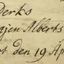 Derks
ojen Alberts
rt den 19 Ap